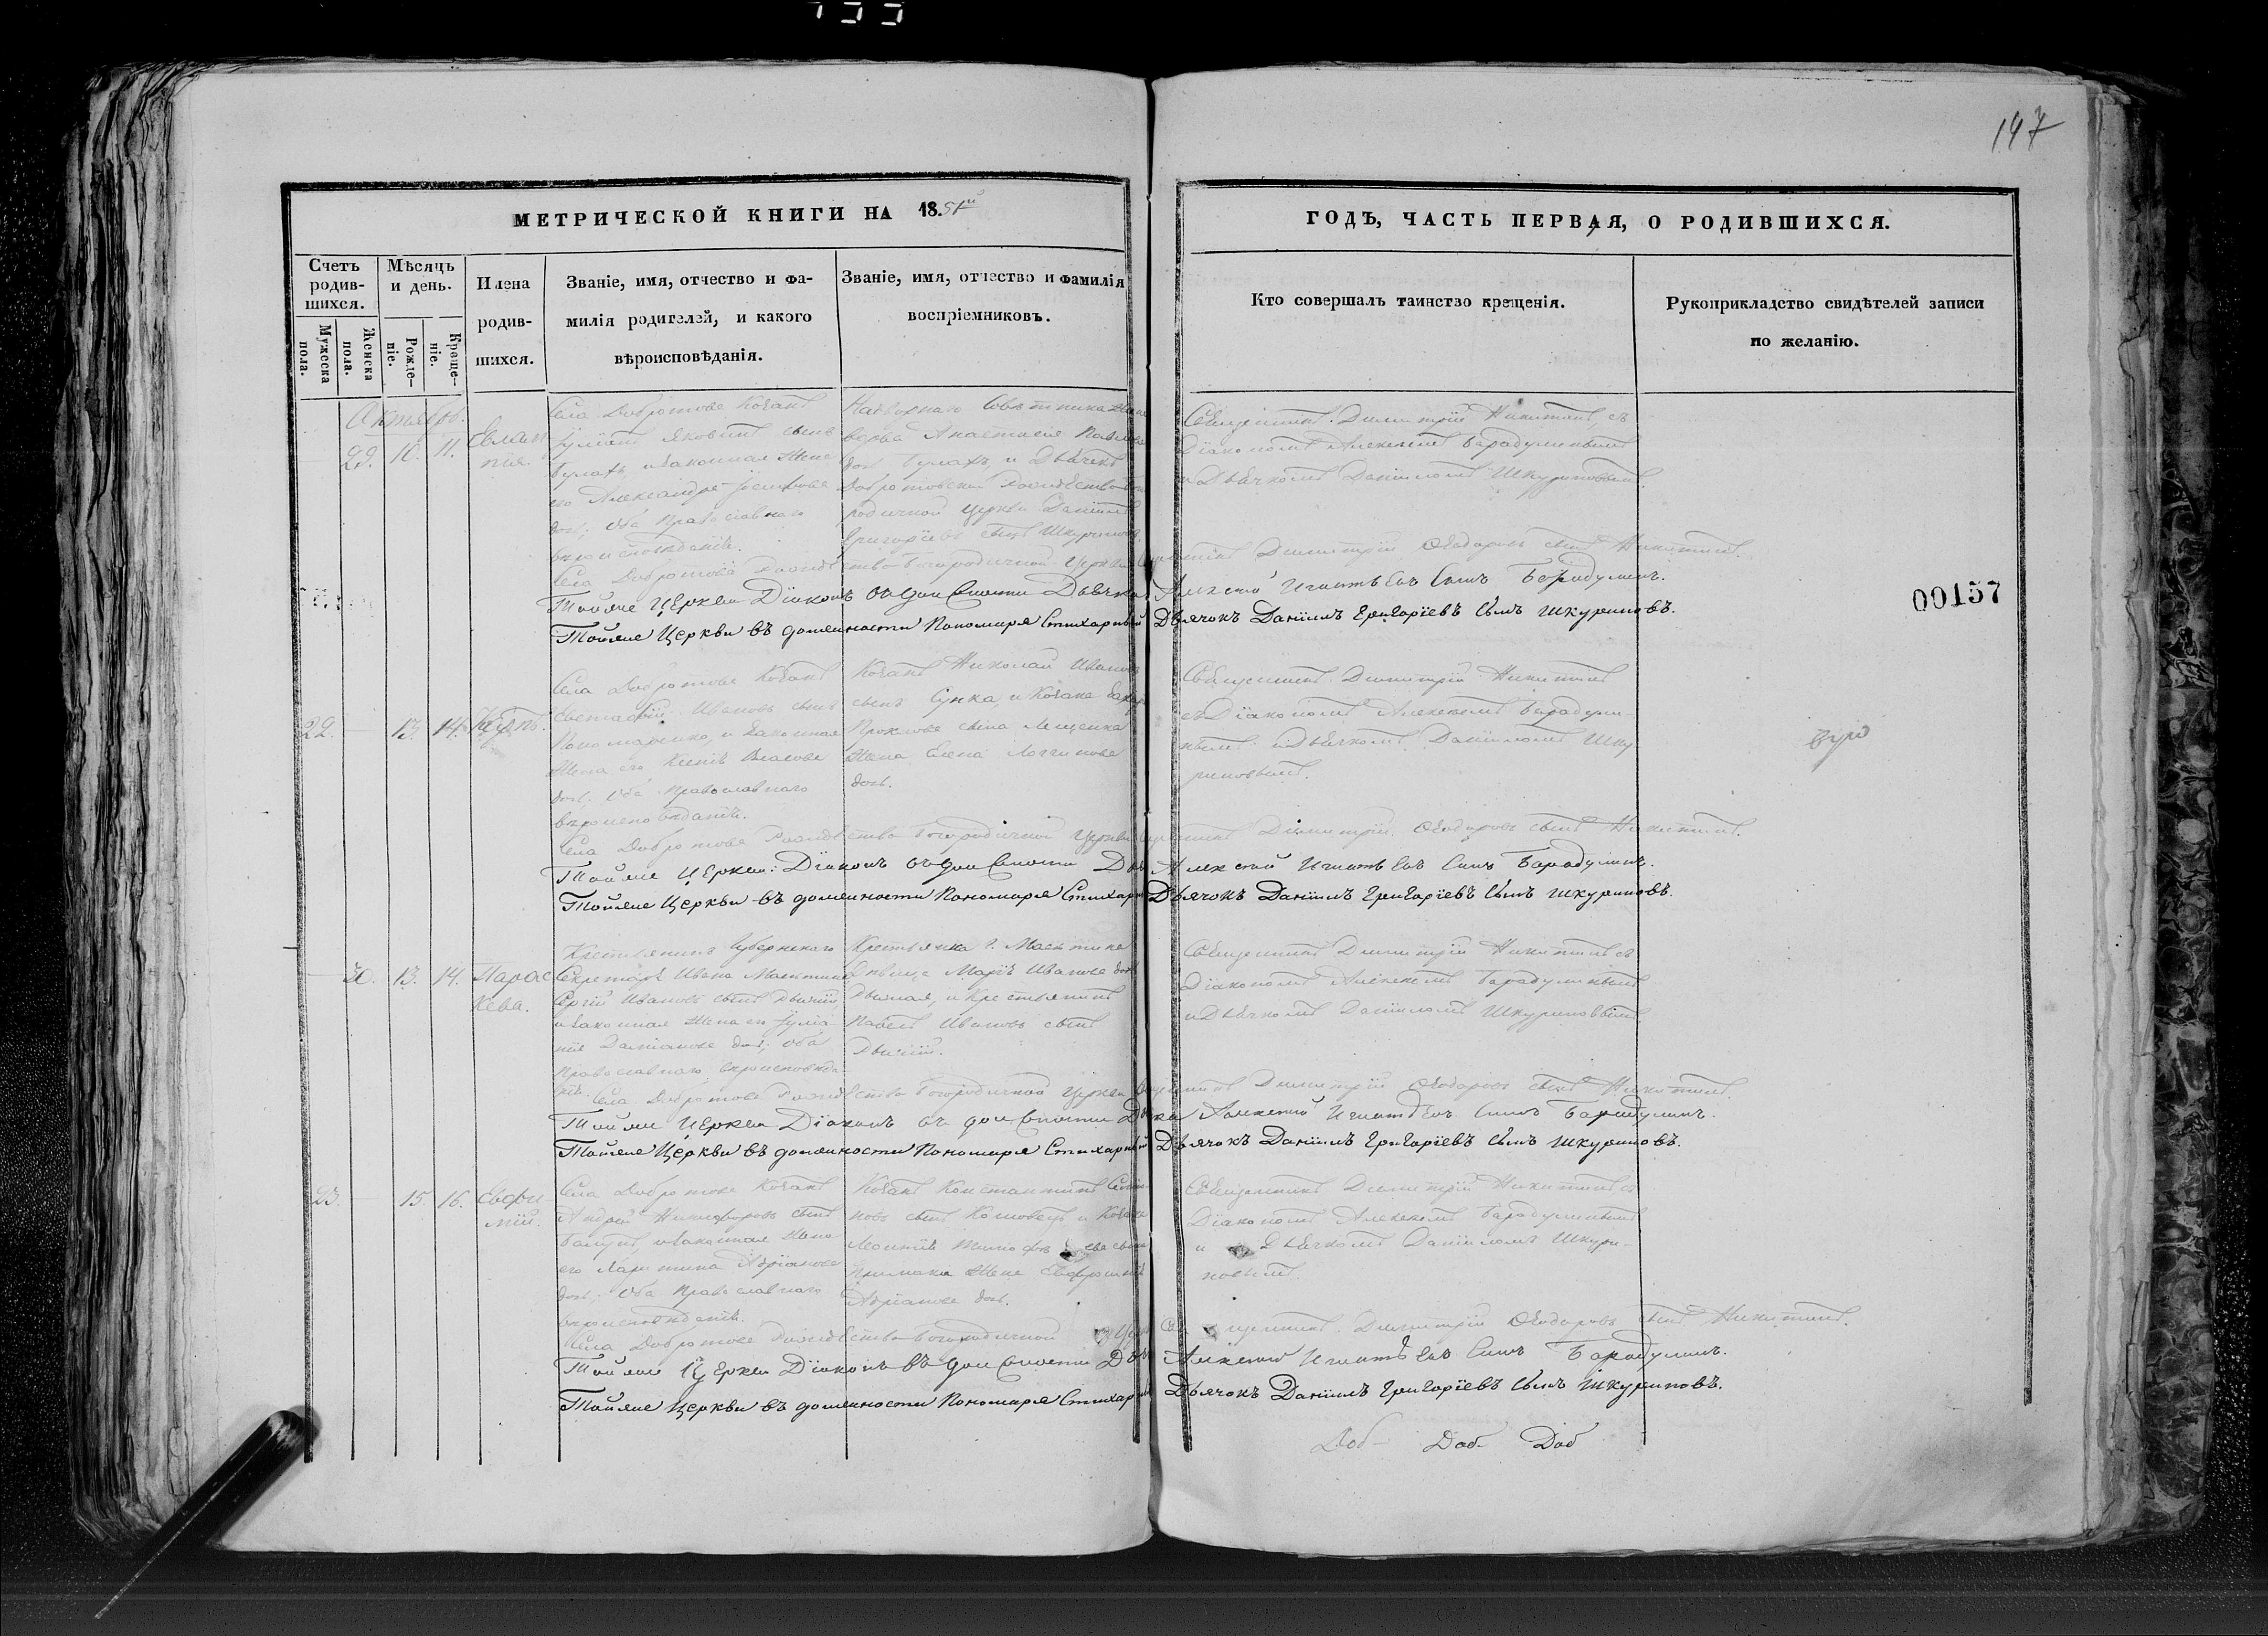 147
МЕТРИЧЕСКОЙ КНИГИ НА 18.51й
ГОДЪ, ЧАСТЬ ПЕРВАЯ, О РОДИВШИХСЯ.
Счетъ родив-шихся.
Мѣсяцъ и день.
Имена родив-шихся.
Званіе, имя, отчество и фа-
милія родителей, и какого
вѣроисповѣданія.
Званіе, имя, отчество и фамилія
воспріемниковъ.
Кто совершалъ таинство крещенія.
Рукоприкладство свидѣтелей записи
по желанію.
Мужеска пола.
Женска пола.
Рожде-ніе.
Креще-ніе.
Октябрь.
29. 10. 11.
Евлам
пія.
Села Добротова Козакъ
Іуліанъ Яковлевъ сынъ
Булахъ и законная жена
его Александра Іосифова
дочь; оба православнаго
вѣроисповѣданія.
Надворнаго Совѣтника
Анастасія
дочь Булахъ, и Дьячекъ
Добротовской Рождество Бого
родичной церкви Даніилъ
Григоріевъ сынъ Шкуриновъ.
Священникъ Димитрій Никитинъ съ
Діакономъ Алексѣемъ Барадулинымъ
и Дьячкомъ Даніиломъ Шкуриновымъ.
Села Добротова Рождество Богородичной Церкви Священникъ Димитрій Ѳеодоровъ сынъ Никитинъ.
Тойже Церкви Діаконъ въ должности Дьячка Алексѣй Игнатьевъ Сынъ Барадулинъ.
Тойже Церкви въ должности Пономаря Стихарный Дьячокъ Даніилъ Григоріевъ Сынъ Шкуриновъ.
00157
22. 13. 14.
Села Добротова Козакъ
Евстафій Ивановъ сынъ
Пономаренко, и законная
жена его Ксенія Власова
дочь; оба православнаго
вѣроисповѣданія.
Козакъ Николай Ивановъ
сынъ Сунка, и Козака
Проклова сына Лещенка
жена Елена Логгинова
дочь.
Священникъ Димитрій Никитинъ
съ Діакономъ Алексѣемъ Барадули-
нымъ и Дьячкомъ Даніиломъ Шку
риновымъ.
Села Добротова Рождество Богородичной Церкви Священникъ Димитрій Ѳеодоровъ сынъ Никитинъ.
Тойже Церкви Діаконъ въ должности Алексѣй Игнатьевъ Сынъ Барадулинъ.
Тойже Церкви въ должности Пономаря Стихарный Дьячокъ Даніилъ Григоріевъ Сынъ Шкуриновъ.
30. 13. 14.
Парас
кева.
Крестьянинъ Губернскаго
Секретаря Ивана
Сергій Ивановъ сынъ
и законная жена его Іуліа
нія Даміанова дочь; оба
православнаго вѣроисповѣда
нія.
Крестьянка г.
дѣвица Марія Иванова дочь
и крестьянинъ
Павелъ Ивановъ сынъ
Священникъ Димитрій Никитинъ съ
Діакономъ Алексѣемъ Барадулинымъ
и Дьячкомъ Даніиломъ Шкуриновымъ.
Села Добротова Рождество Богородичной Церкви Священникъ Димитрій Ѳеодоровъ сынъ Никитинъ.
Тойже Церкви Діаконъ въ должности Дьячка Алексѣй Игнатьевъ Сынъ Барадулинъ.
Тойже Церкви въ должности Пономаря Стихарный Дьячокъ Даніилъ Григоріевъ Сынъ Шкуриновъ.
23. 15. 16.
Евфи
мій.
Села Добротова Козакъ
Андрей Никифоровъ сынъ
и законная жена
его Харитина Адріанова
дочь; оба православнаго
вѣроисповѣданія.
Козакъ Константинъ
новъ сынъ и Козака
Леонтія Тимофѣева сына
Примака жена Евфросинія
Адріанова дочь.
Священникъ Димитрій Никитинъ съ
Діакономъ Алексѣемъ Барадулинымъ
и Дьячкомъ Даніиломъ Шкури-
новымъ.
Села Добротова Рождество Богородичной Священникъ Димитрій Ѳеодоровъ сынъ Никитинъ.
Тойже Церкви Діаконъ въ должности Алексѣй Игнатьевъ Сынъ Барадулинъ.
Тойже Церкви въ должности Пономаря Стихарный Дьячокъ Даніилъ Григоріевъ Сынъ Шкуриновъ.
Доб Доб Доб